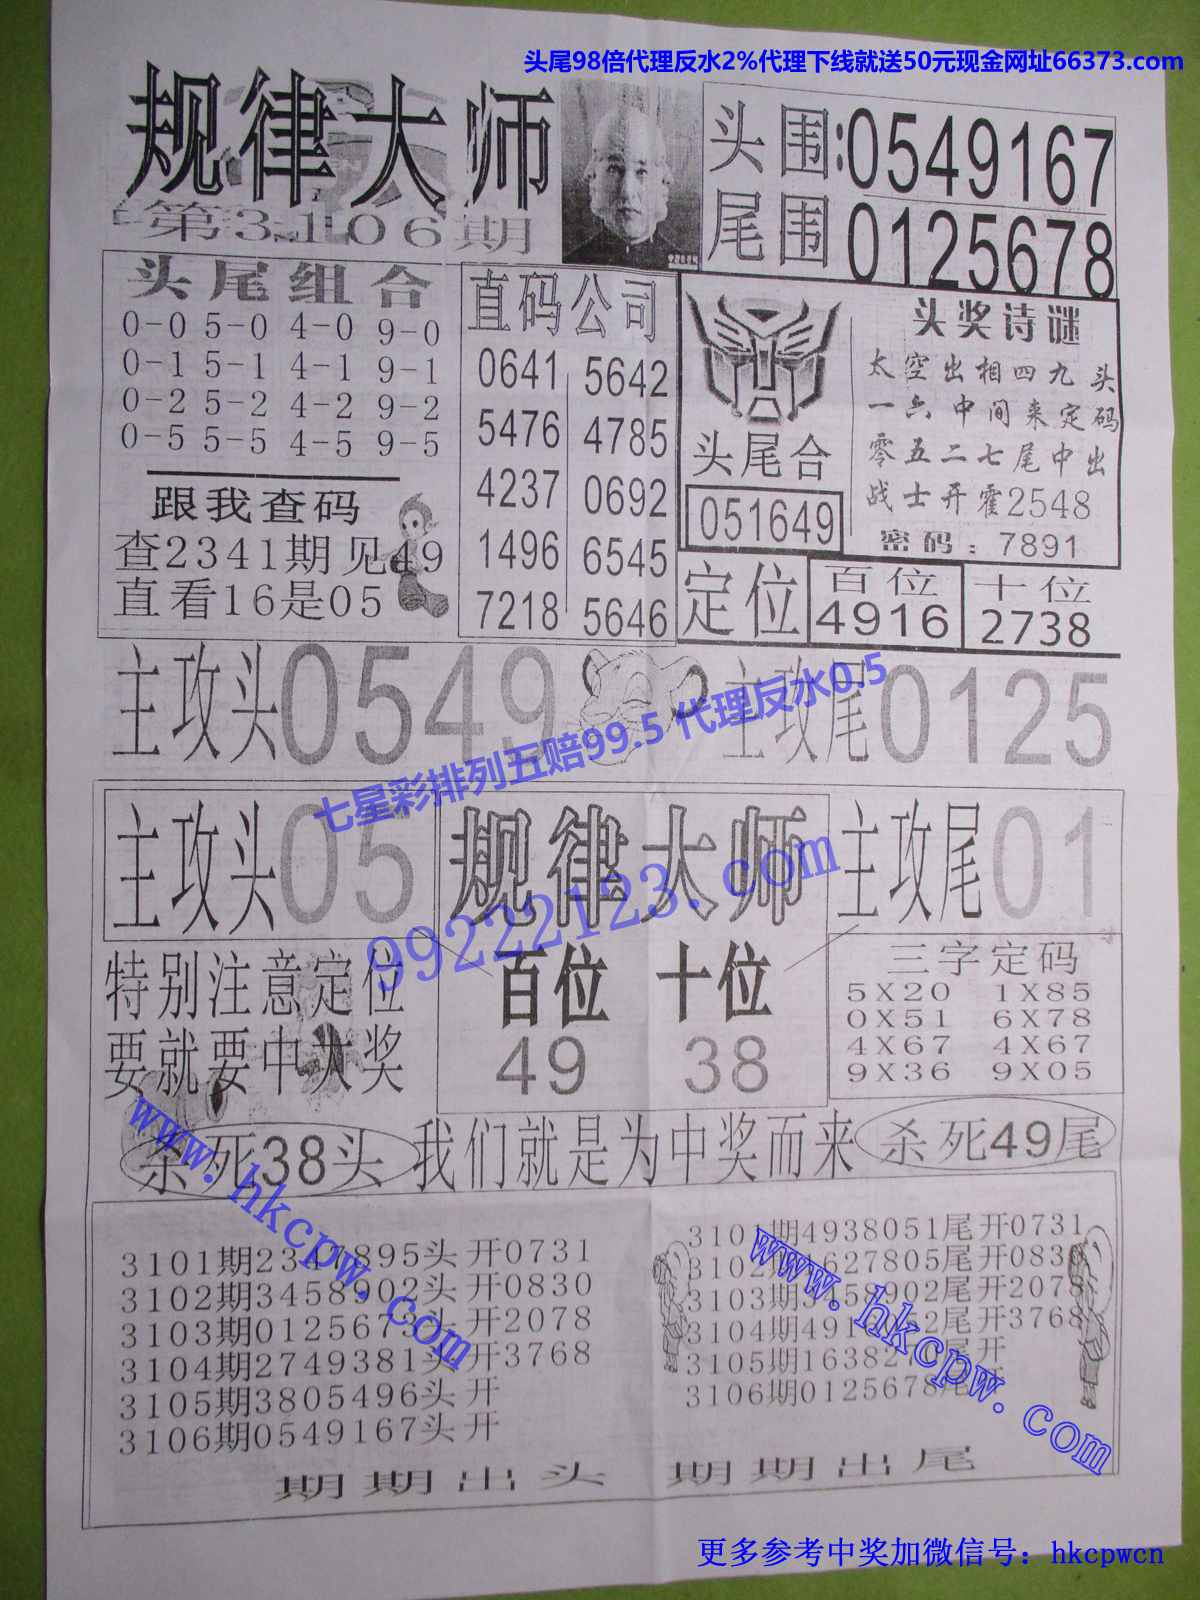 头尾98倍代理反水2%代理下线就送50元现金网址66373.com
规律大师
第3106期
头围:0549167
尾围 0125678
头尾组合
0-0 5-0 4-0 9-0
0-1 5-1 4-1 9-1
0-2 5-2 4-2 9-2
0-5 5-5 4-5 9-5
跟我查码
查2341期见49
直看16是05
直码公司
0641 5642
5476 4785
4237 0692
1496 6545
7218 5646
头尾合
051649
头奖诗谜
太空出相四九头
一六中间来定码
零五二七尾中出
战士开霍2548
密码:7891
定位
百位
4916
十位
2738
主攻头0549
主攻尾0125
七星彩排列五赔99.5 代理反水0.5
主攻头05
规律大师
主攻尾01
99222123.com
特别注意定位
要就要中大奖
百位 十位
49 38
三字定码
5X20 1X85
0X51 6X78
4X67 4X67
9X36 9X05
杀死38头
我们就是为中奖而来
杀死49尾
www.hkcpw.com
3101期2341895头开0731
3102期3458902头开0830
3103期0125673头开2078
3104期2749381头开3768
3105期3805496头开
3106期0549167头开
3101期4938051尾开0731
3102期627805尾开083
3103期3458902尾开2078
3104期491 2尾开3768
3105期163827 尾开
3106期0125678尾开
www.hkcpw.com
期期出头 期期出尾
更多参考中奖加微信号：hkcpwcn